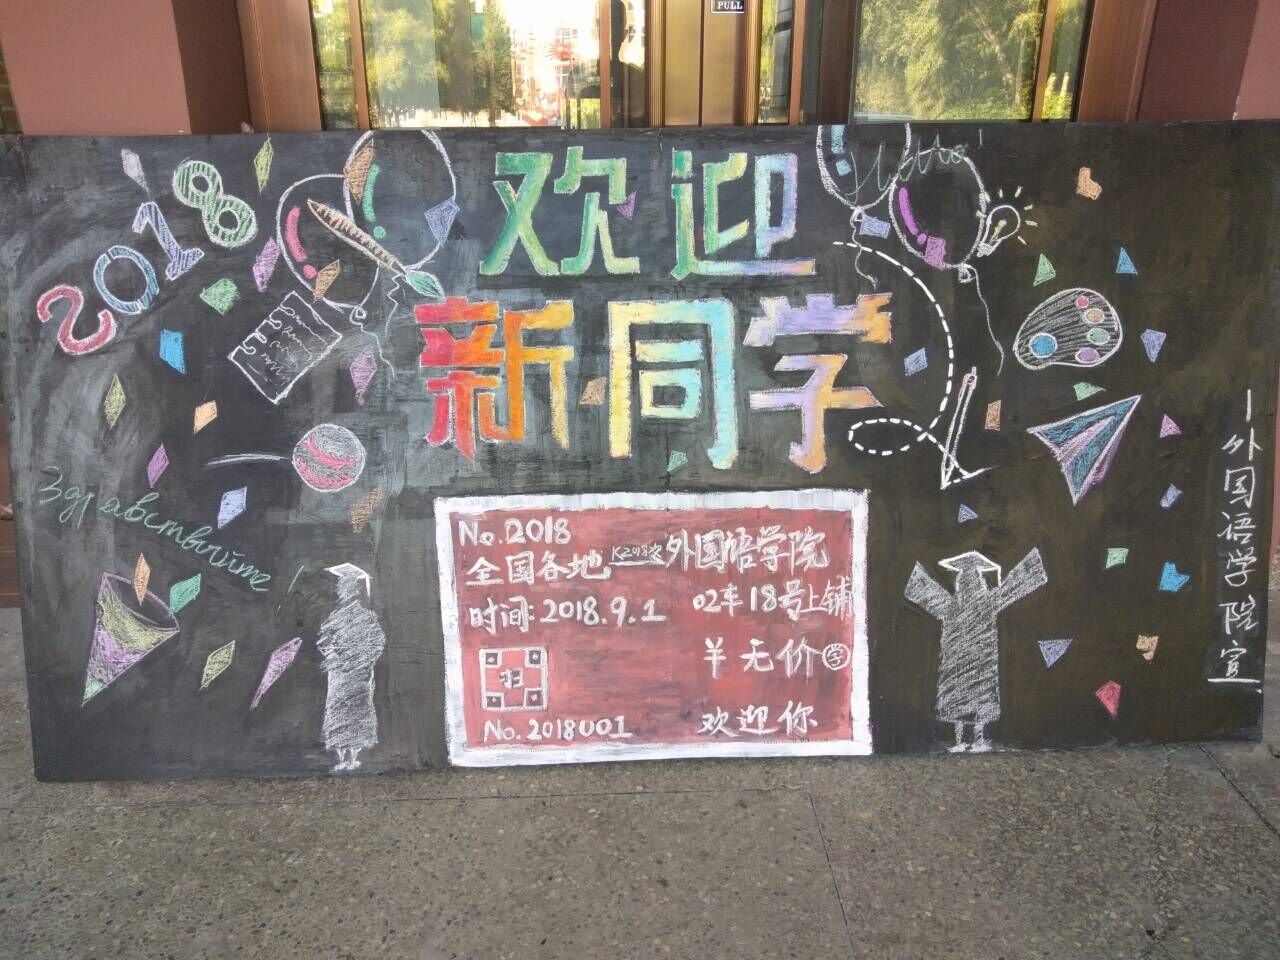 PULL
2018
欢迎
新同学
Hello!
Здравствуйте!
No.2018
全国各地 K2018次 外国语学院
时间:2018.9.1 02车18号上铺
¥无价 学
羽
No.2018001 欢迎你
—外国语学院宣